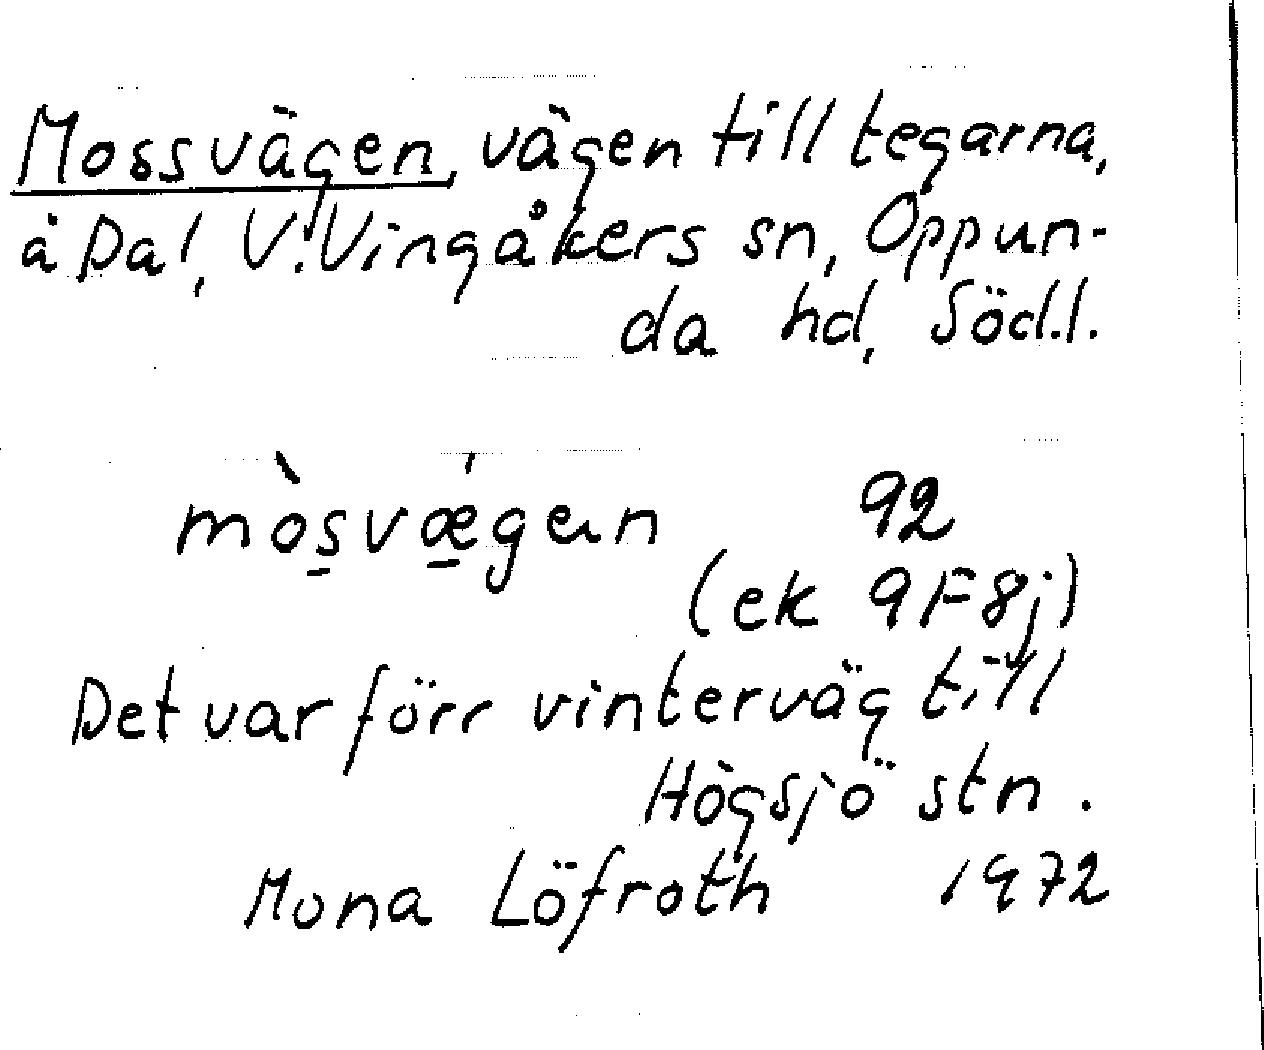 Mossvägen, vägen till tegarna,
å Dal, V. Vingåkers sn, Oppun-
da hd, Södl.
mòs̠vǽ̠gen 92
(ek 9F8j)
Det var förr vinterväg till
Högsjö stn.
Mona Löfroth 1972